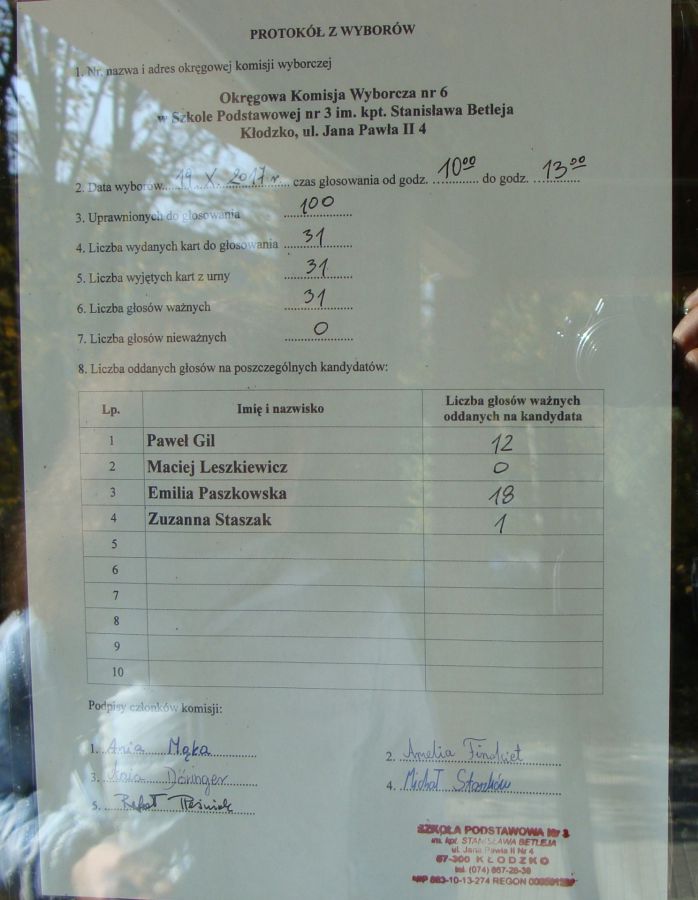 PROTOKÓŁ Z WYBORÓW
1. Nr, nazwa i adres okręgowej komisji wyborczej
Okręgowa Komisja Wyborcza nr 6
w Szkole Podstawowej nr 3 im. kpt. Stanisława Betleja
Kłodzko, ul. Jana Pawła II 4
2. Data wyborów 19 X 2017 r. czas głosowania od godz. 10⁰⁰ do godz. 13⁰⁰
3. Uprawnionych do głosowania 100
4. Liczba wydanych kart do głosowania 31
5. Liczba wyjętych kart z urny 31
6. Liczba głosów ważnych 31
7. Liczba głosów nieważnych 0
8. Liczba oddanych głosów na poszczególnych kandydatów:
Lp. Imię i nazwisko Liczba głosów ważnych oddanych na kandydata
1 Paweł Gil 12
2 Maciej Leszkiewicz 0
3 Emilia Paszkowska 18
4 Zuzanna Staszak 1
5
6
7
8
9
10
Podpisy członków komisji:
1. Ania Mąka
2. Amelia
3. Döringer
4. Michał
5. Rafał
SZKOŁA PODSTAWOWA Nr 3
im. kpt. STANISŁAWA BETLEJA
ul. Jana Pawła II Nr 4
57-300 KŁODZKO
tel. (074) 867-28-38
NIP 883-10-13-274 REGON